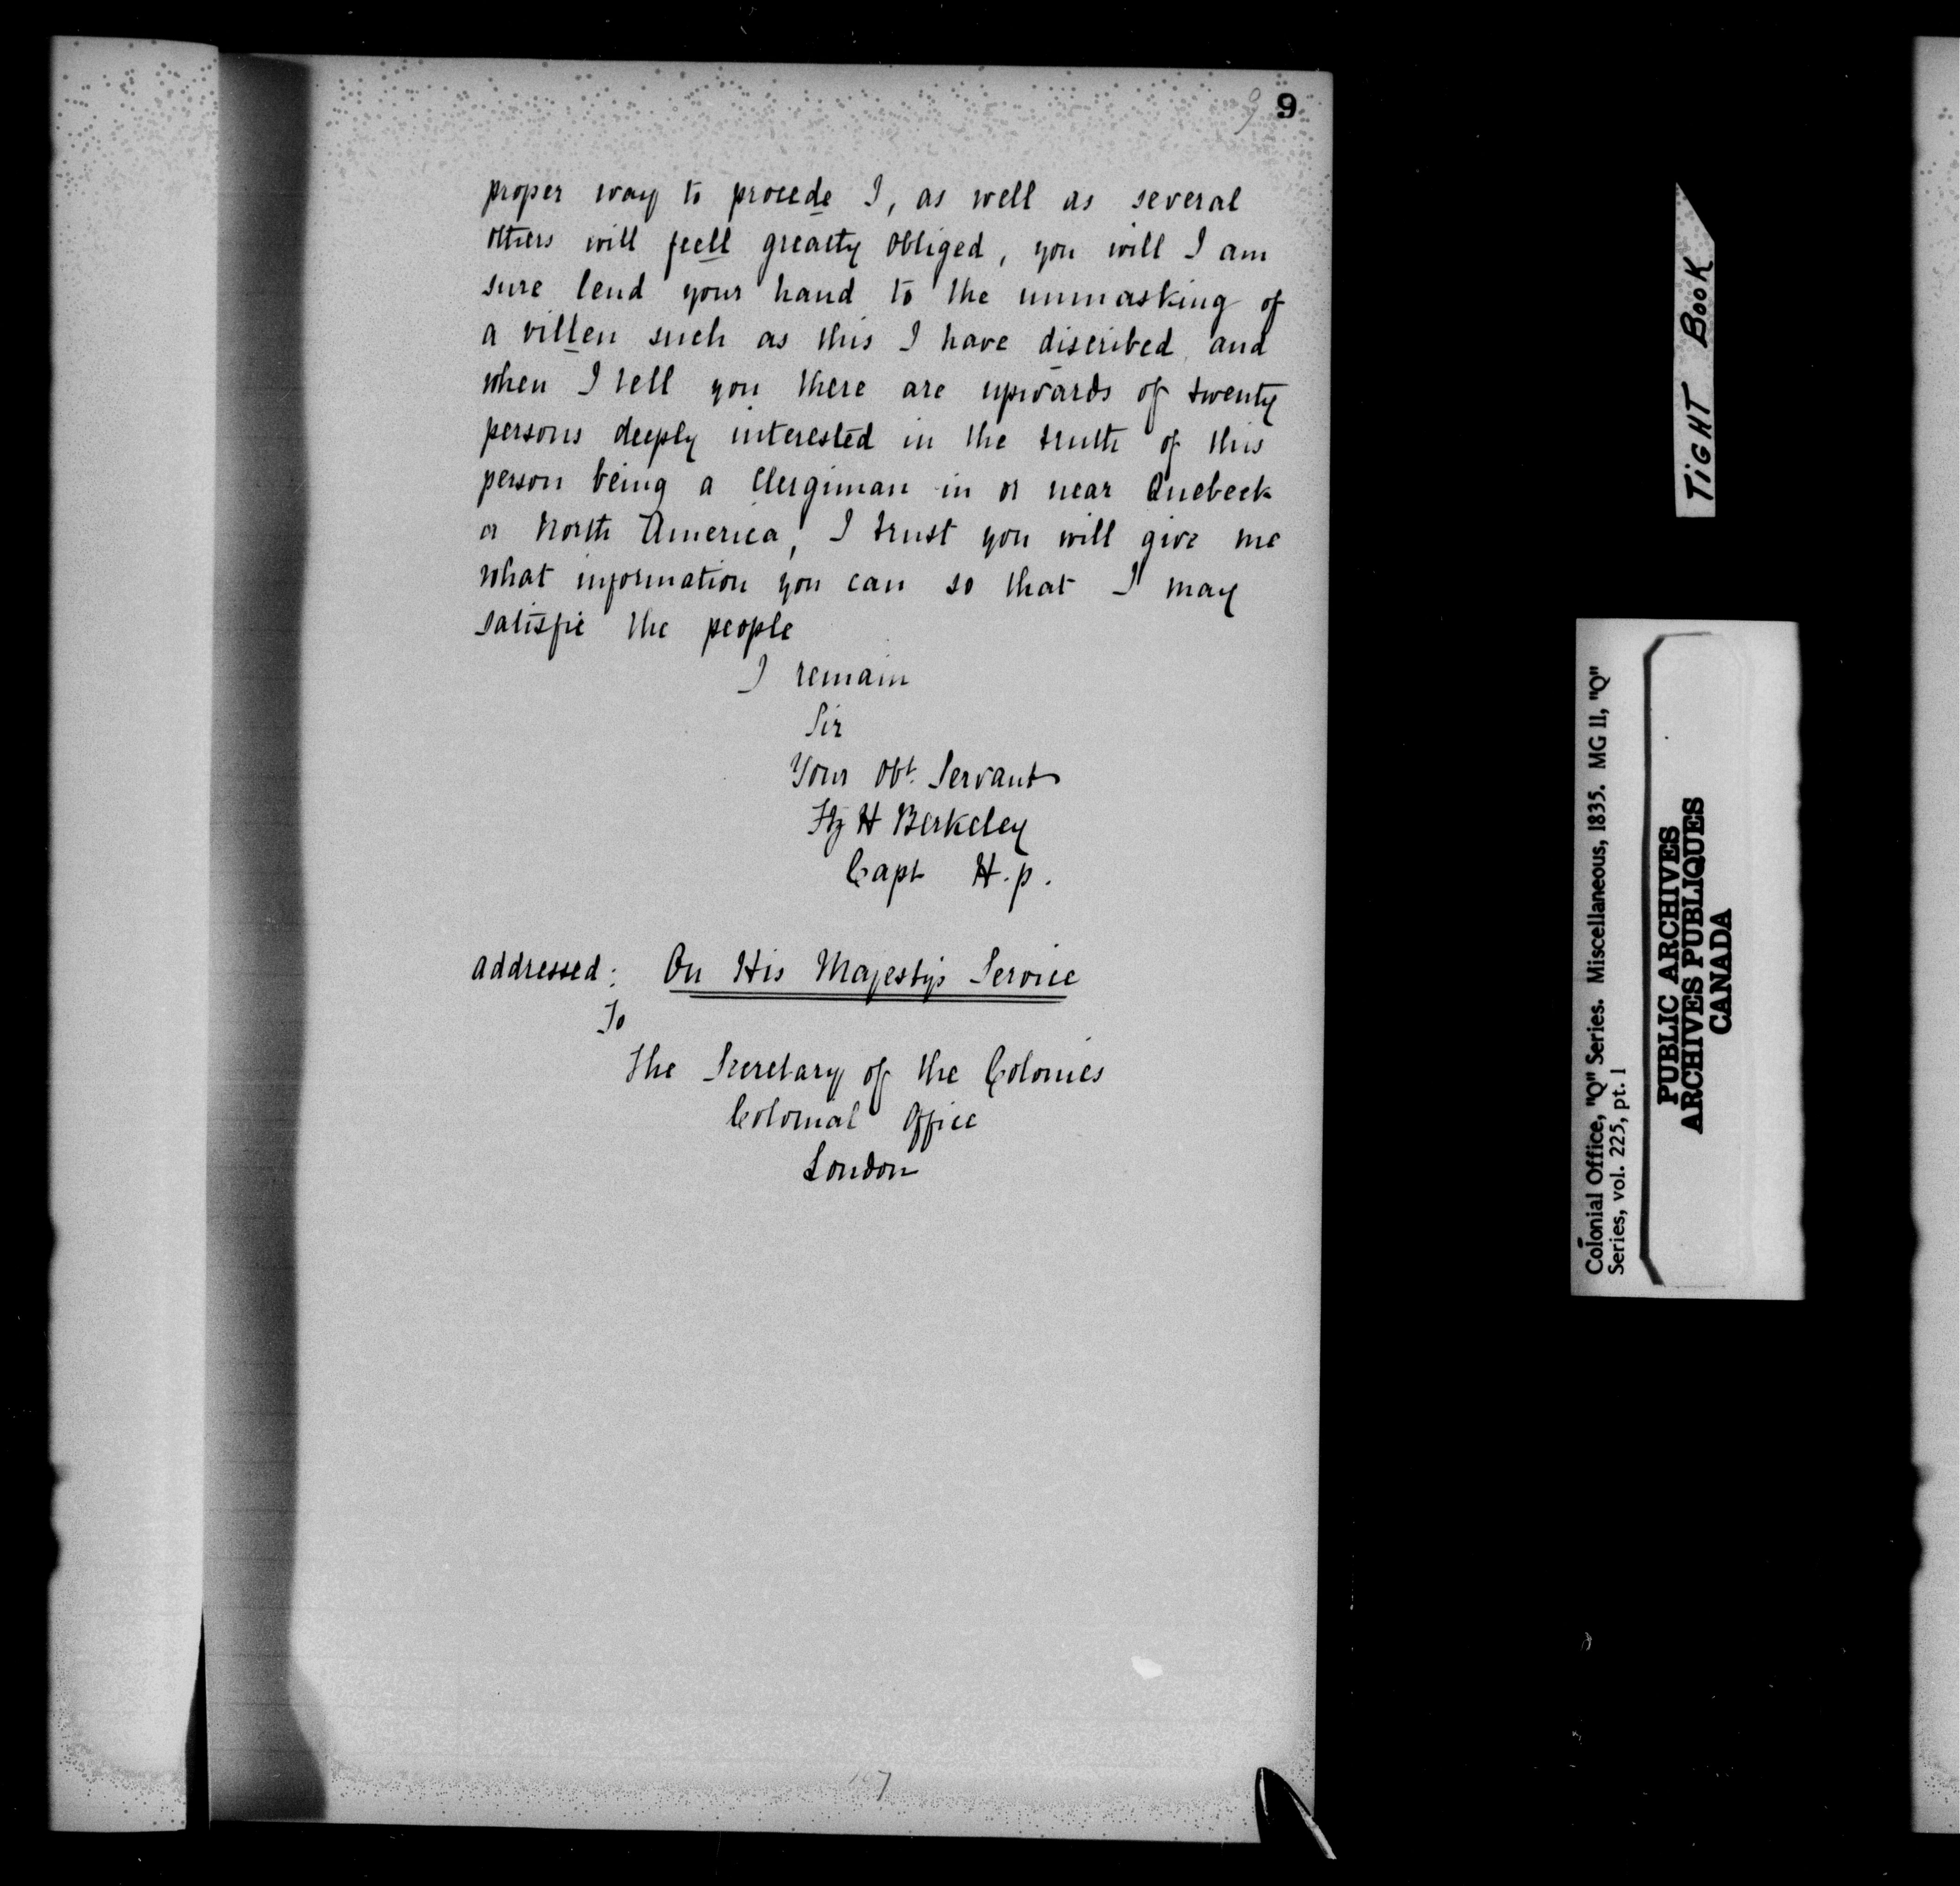 9 9
proper way to procede I, as well as several
others will feell greatly obliged, you will I am
sure lend your hand to the unmasking of
a villen such as this I have discribed and
when I tell you there are upwards of twenty
persons deeply interested in the truth of this
person being a Clergiman in or near Quebeck
or North America, I trust you will give me
what information you can so that I may
satisfie the people
I remain
Sir
Your Obt. Servant
Fitz H Berkeley
Capt H.p.
addressed: On His Majesty's Service
To
The Secretary of the Colonies
Colonial Office
London
TIGHT BOOK
Colonial Office, "Q" Series. Miscellaneous, 1835. MG 11, "Q"
Series, vol. 225, pt. 1
PUBLIC ARCHIVES
ARCHIVES PUBLIQUES
CANADA